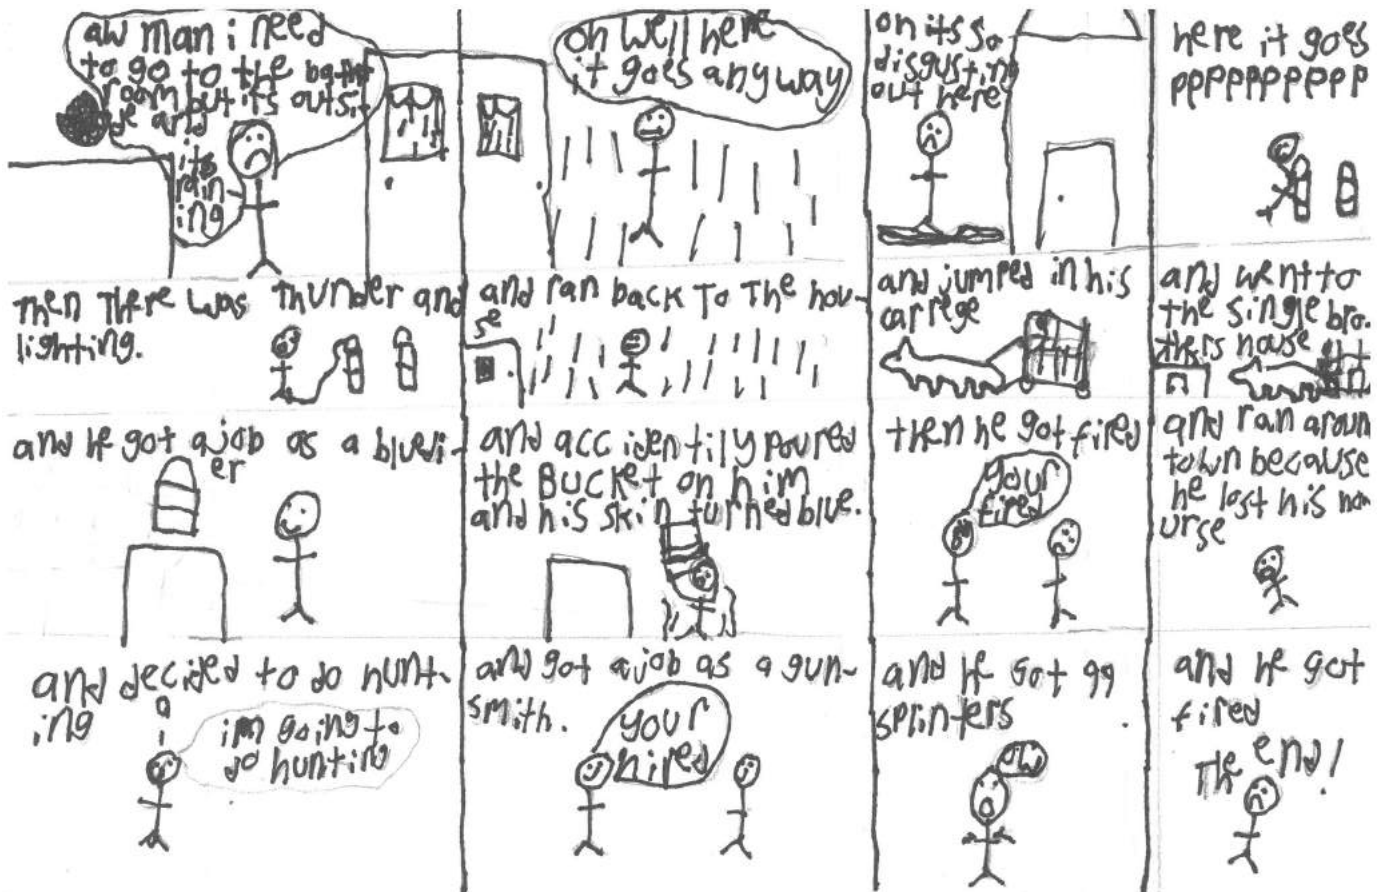 aw man i need
to go to the bath
room but it's outsi
de and
its
rain
ing
oh well here
it goes anyway
oh its so
disgusting
out here
here it goes
pppppppppp
Then There was Thunder and
lighting.
and ran back To The hou-
se
and jumped in his
carrege
and went to
the single bro-
thers house
and he got a job as a bluedi-
er
and accidentily poured
the Bucket on him
and his skin turned blue.
then he got fired
your
fired
and ran aroun
town because
he lost his
urse
and decided to do hunt-
ing
im going to
do hunting
and got a job as a gun-
smith.
your
hired
and he got 99
sprinters
ow
and he got
fired
The end!